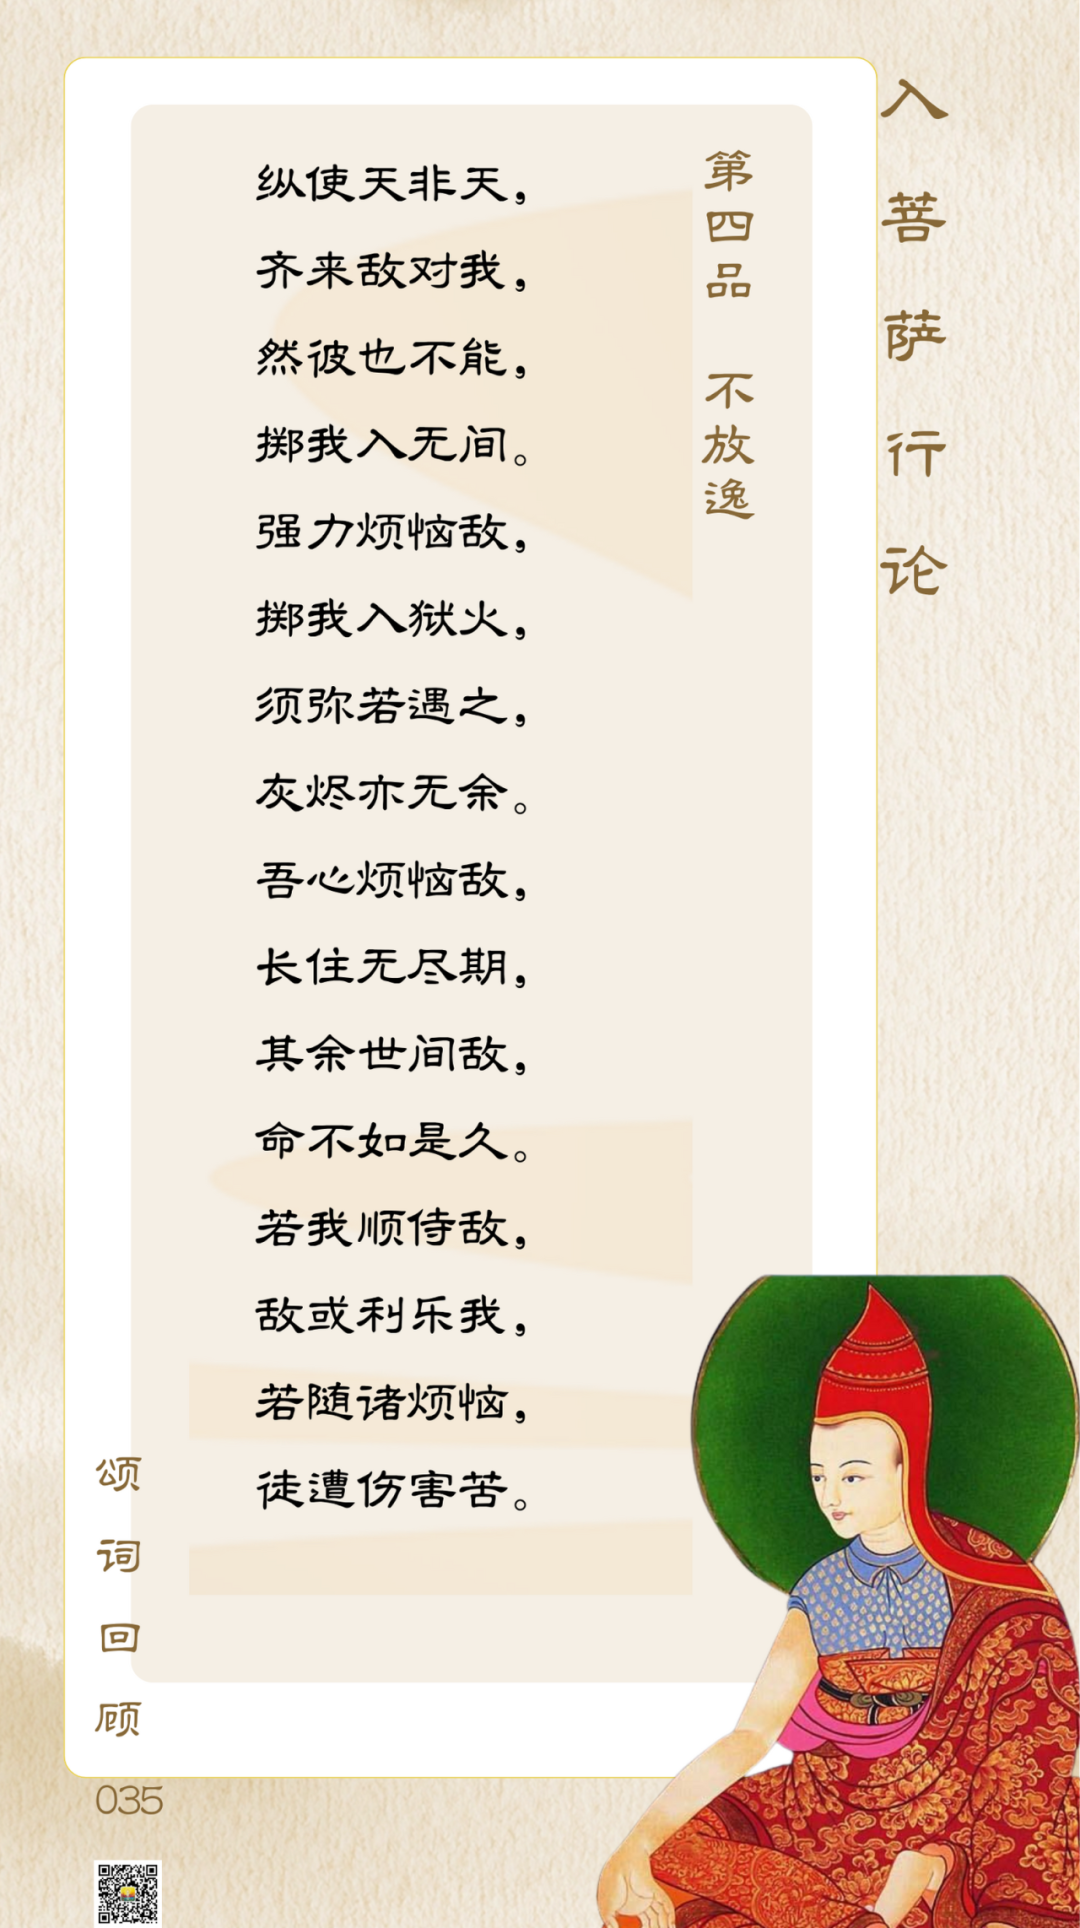 入菩萨行论
第四品 不放逸
纵使天非天，
齐来敌对我，
然彼也不能，
掷我入无间。
强力烦恼敌，
掷我入狱火，
须弥若遇之，
灰烬亦无余。
吾心烦恼敌，
长住无尽期，
其余世间敌，
命不如是久。
若我顺侍敌，
敌或利乐我，
若随诸烦恼，
徒遭伤害苦。
颂词回顾
035